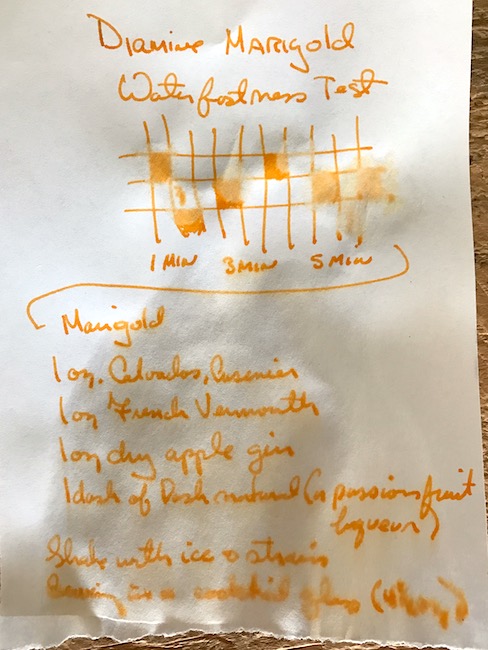 Diamine Marigold
Waterfastness Test
1 MIN 3 MIN 5 MIN
Marigold
1 oz. Calvados,
1 oz French Vermouth
1 oz dry apple gin
1 dash of natural (a passionfruit
liqueur)
Shake with ice & strain
a cocktail glass